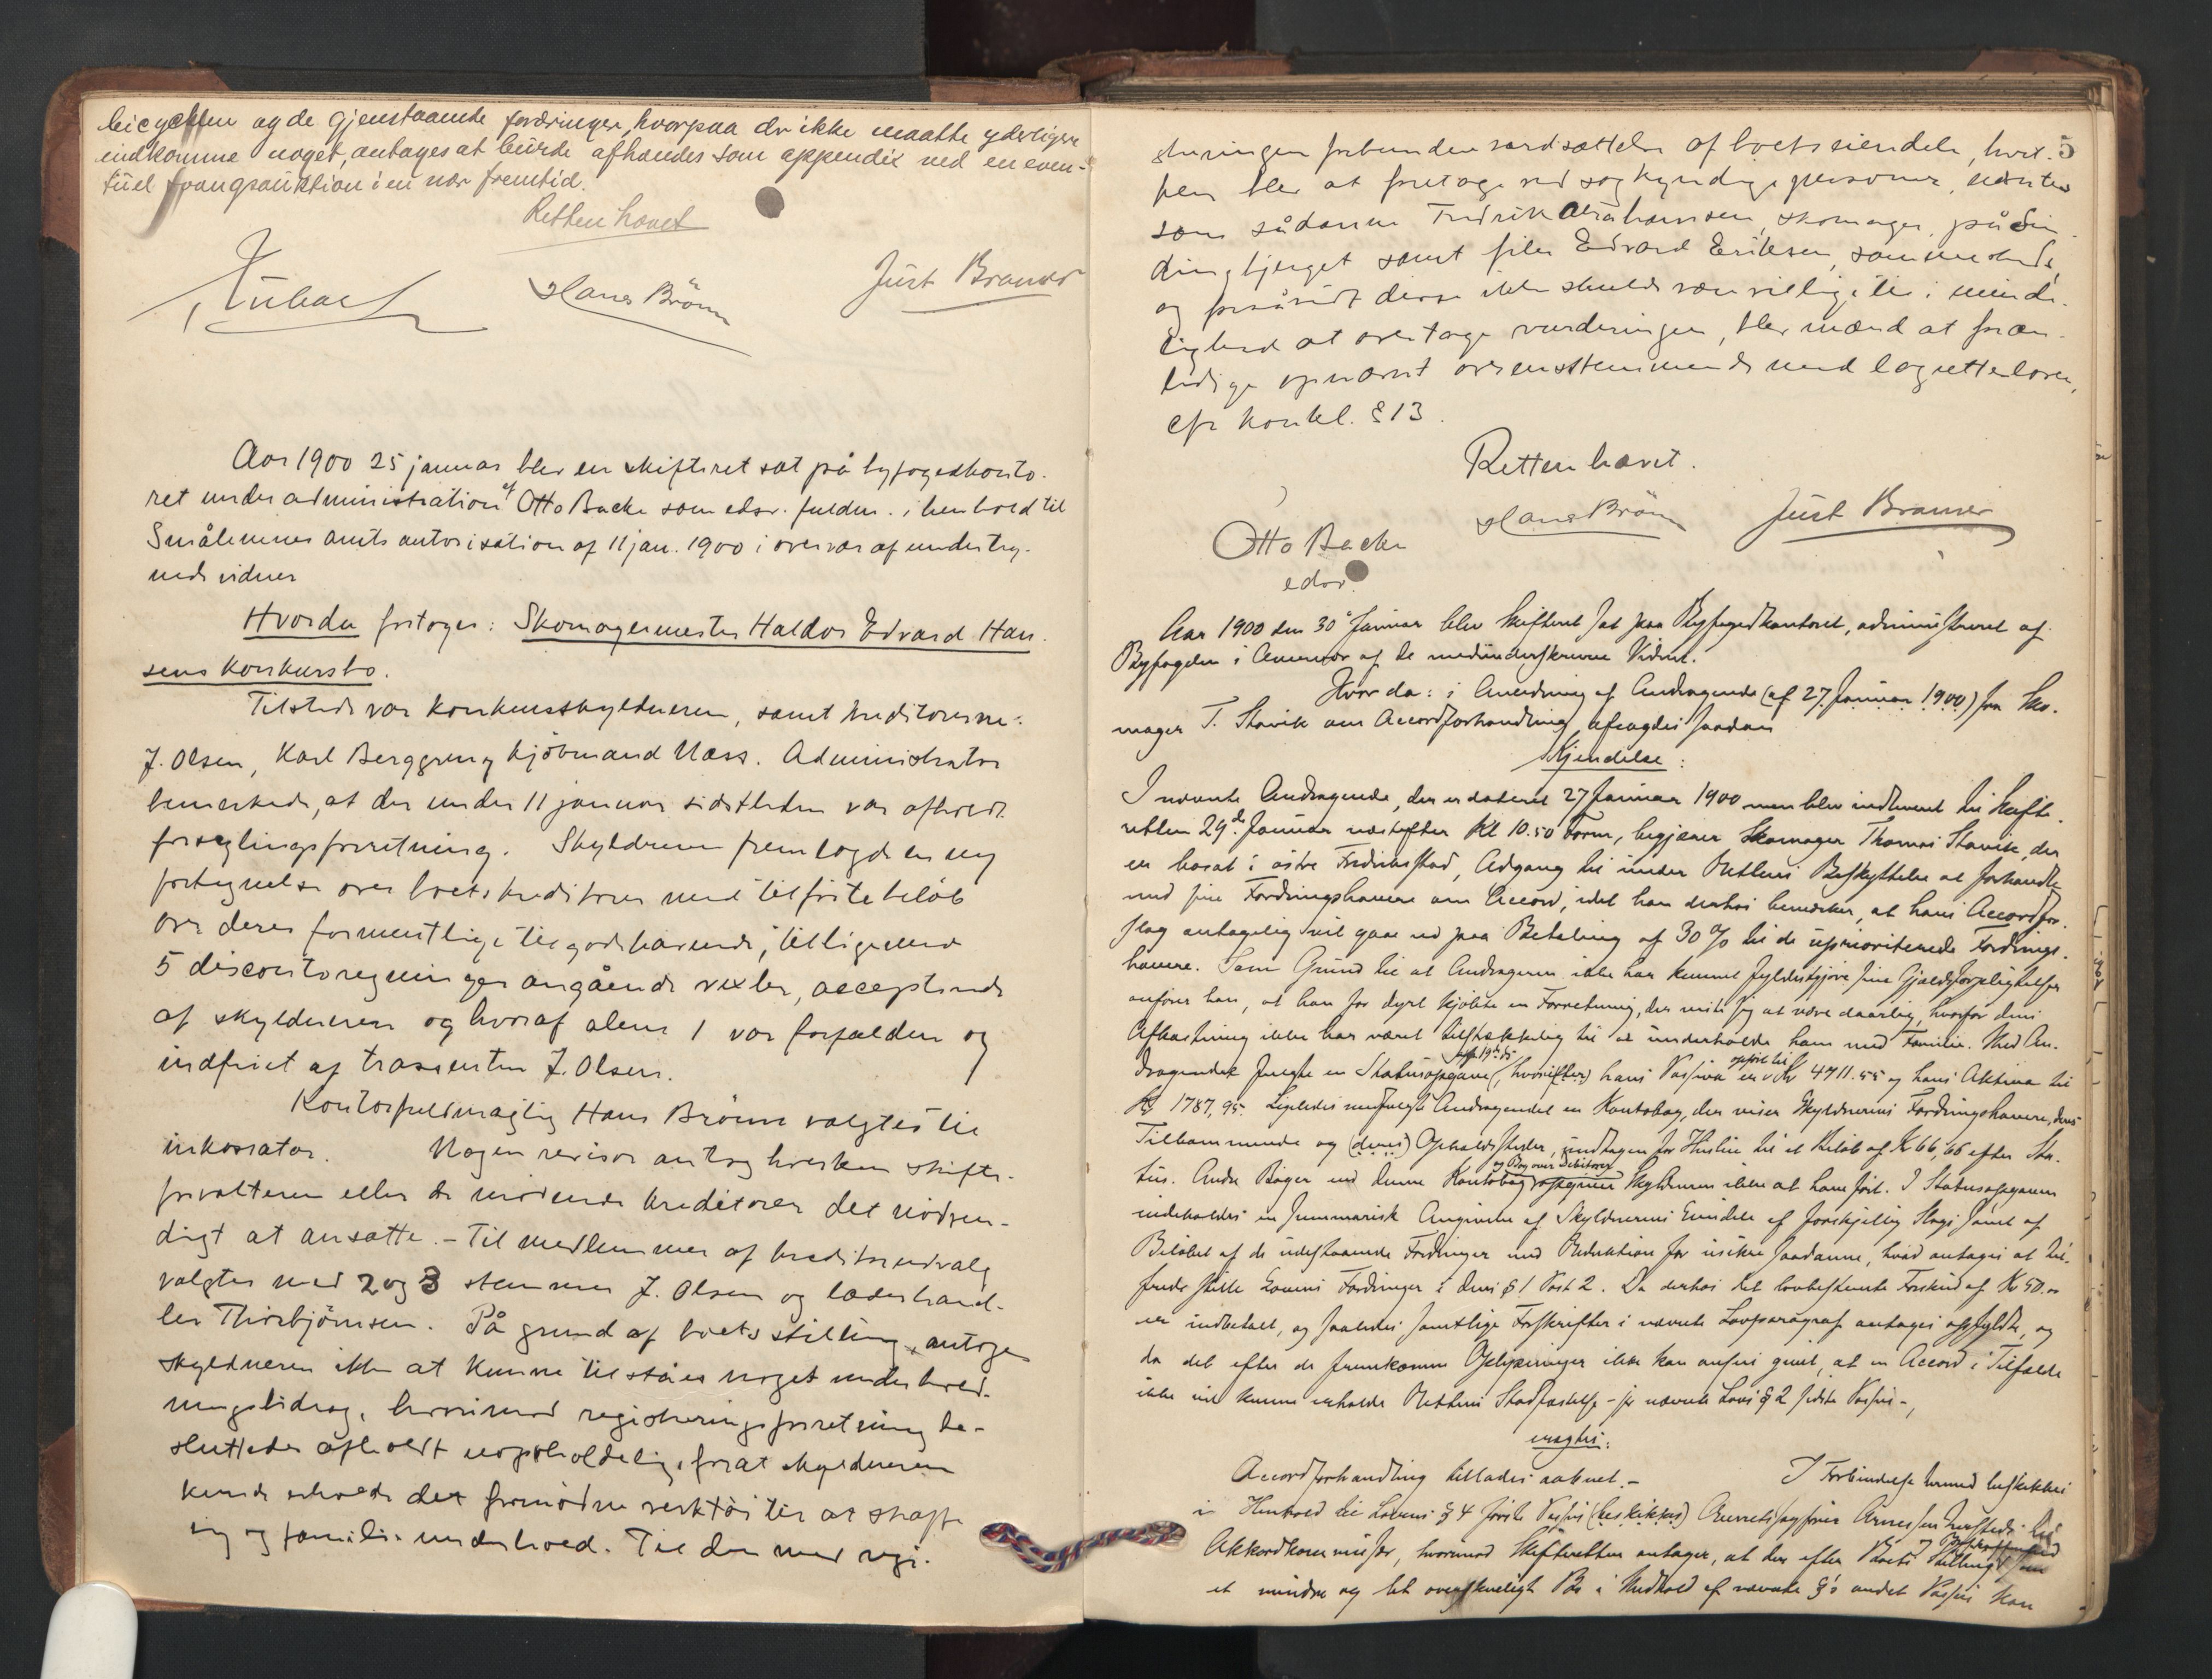 bicyklen og de gjenstaaende fordringer, hvorpaa der ikke maatte yderligere
indkomme noget, antages at burde afhændes som appendix ved en even-
tuel tvangsauktion i en nær fremtid.
Retten hævet
Hans Brönn Just Braner
Aar 1900 25 januar blev en skifteret sat på byfogedkonto-
ret under administration af Otto Backe som edsv. fuldm. i henhold til
Smålenenes amts autorisation af 11 jan. 1900 i overvær af underteg-
nede vidner
Hvorda foretoges: Skomagermester Haldor Edvard Han-
sens konkursbo.
Tilstede var konkursskyldneren, samt kreditorerne:
J. Olsen, Karl Berggren og kjöbmand Næss. Administrator
bemærkede, at der under 11 januar sidstleden var afholdt
forseglingsforretning. Skyldneren fremlagde en ny
fortegnelse over boets kreditorer med tilföiet belöb
over deres formentlige tilgodehavende, tilligemed
5 discontoregninger angående vexler, accepterede
af skyldneren og hvoraf alene 1 var forfalden og
indfriet af trassenten J. Olsen.
Kontorfuldmægtig Hans Brönn valgtes til
inkassator. Nogen revisor antog hverken skifte-
forvalteren eller de mödende kreditorer det nödven-
digt at ansætte. - Til medlemmer af kreditorudvalg
valgtes med 2 og 3 stemmer J. Olsen og læderhand-
ler Thorbjörnsen. På grund af boets stilling antoges
skyldneren ikke at kunne tilståes noget underhold-
ningsbidrag, hvorimod registreringsforretning be-
sluttedes afholdt uopholdelig, forat skyldneren
kunde erholde det fornödne verktöi til at skaffe
sig og familie underhold. Til den med regi-
5
streringen forbundne værdsættelse af boets eiendele, hvil-
ken blev at foretage ved sagkyndige personer, udnævntes
som sådanne Fredrik Abrahamsen, skomager, på Sin-
dingbjerget samt filer Edvard Eriksen, sammesteds,
og forsåvidt disse ikke skulde være villige til i minde-
lighed at overtage vurderingen, blev mænd at frem-
tidige opnævnt overensstemmende med lagretteloven,
cfr konkl. § 13.
Retten hævet.
Otto Backe Hans Brönn Just Braner
edsv.
Aar 1900 den 30 Januar blev Skifteret sat paa Byfogedkontoret, administreret af
Byfogden i Overvær af de medunderskrevne Vidner.
Hvor da: i Anledning af Andragende (af 27 Januar 1900) fra Sko-
mager T. Stavik om Accordforhandling afsagdes saadan
Kjendelse:
I nævnte Andragende, der er dateret 27 Januar 1900 men blev indleveret til Skifte-
retten 29de Januar næstefter Kl 10.50 Form, begjærer Skomager Thomas Stavik, der
er bosat i östre Fredrikstad, Adgang til under Rettens Beskyttelse at forhandle
med sine Fordringshavere om Accord, idet han derhos bemærker, at hans Accordfor-
slag antagelig vil gaa ud paa Betaling af 30 % til de uprioriterede Fordrings-
havere. Som Grund til at Andrageren ikke har kunnet fyldestgjöre sine Gjældsforpligtelser
anförer han, at han for dyrt kjöbte en Forretning, der viste sig at være daarlig, hvorfor dens
Afkastning ikke har været tilstrækkelig til at underholde ham med Familie. Med An-
dragendet fulgte en Statusopgave, (hvorefter) hans Passiva er opfört til Kr 4711.55 og hans Aktiva til
Kr 1787,95. Ligeledes medfulgte Andragendet en Kontobog, der viser Skyldnerens Fordringshavere, deres
Tilkommende og (deres) Opholdssteder, undtagen for Husleie til et Belöb af Kr 66,66 efter Sta-
tus. Andre Böger end denne Kontobog og Bog over Debitorer opgiver Skyldneren ikke at have fört. I Statusopgaven
indeholdes en summarisk Angivelse af Skyldnerens Eiendele af forskjellig Slags samt af
Belöbet af de udestaaende Fordringer med Reduktion for usikre saadanne, hvad antages at til-
fredsstille Lovens Fordringer i dens § 1 Post 2. Da derhos det lovbestemte Forskud af Kr 50.00
er indbetalt, og saaledes samtlige Forskrifter i nævnte Lovparagraf antages opfyldte, og
da det efter de fremkomne Oplysninger ikke kan ansees givet, at en Accord i Tilfælde
ikke vil kunne erholde Rettens Stadfæstelse - jfr nævnte Lovs § 2 sidste Passus -,
eragtes:
Accordforhandling tillades aabnet. - I Forbindelse hermed beskikkes
i Henhold til Lovens § 4 förste Passus (beskikkes) Overretssagförer Arnesen hersteds til
Akkordkommissær, hvorimod Skifteretten antager, at der efter Boets Stilling og Beskaffenhed som
et mindre og let overskueligt Bo i Medhold af nævnte §'s andet Passus kan